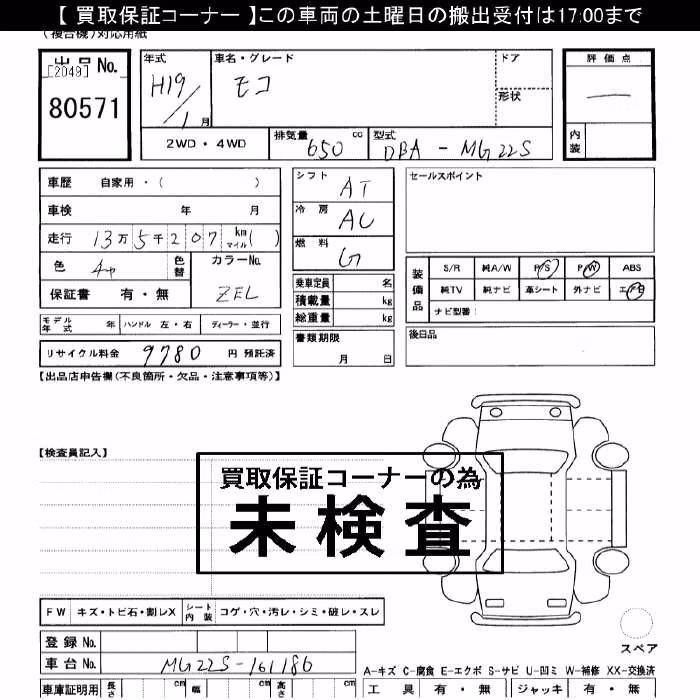 【 買取保証コーナー 】この車両の土曜日の搬出受付は17:00まで
(複合機)対応用紙
出品 No.
[2049]
80571
年式 H19/1月
車名・グレード モコ
ドア
形状
評価点 —
内装
2WD・4WD
排気量 650 cc
型式 DBA-MG22S
車歴 自家用・( )
車検 年 月
走行 13万5千207 km マイル( )
色
色替
カラーNo. ZEL
保証書 有・無
シフト AT
冷房 AC
燃料 G
乗車定員 名
積載量 kg
総重量 kg
書類期限 月 日
セールスポイント
装備品
S/R 純A/W P/S P/W ABS
純TV 純ナビ 革シート 外ナビ エアB
ナビ型番:
後日品
モデル年式 年 ハンドル 左・右 ディーラー・並行
リサイクル料金 9780 円 預託済
【出品店申告欄(不良箇所・欠品・注意事項等)】
【検査員記入】
買取保証コーナーの為
未検査
FW キズ・トビ石・割レX シート内装 コゲ・穴・汚レ・シミ・破レ・スレ
登録 No.
車台 No. MG22S-161186
スペア
A-キズ C-腐食 E-エクボ S-サビ U-凹ミ W-補修 XX-交換済
車庫証明用 長さ cm 幅 cm 高さ cm
工具 有・無 ジャッキ 有・無